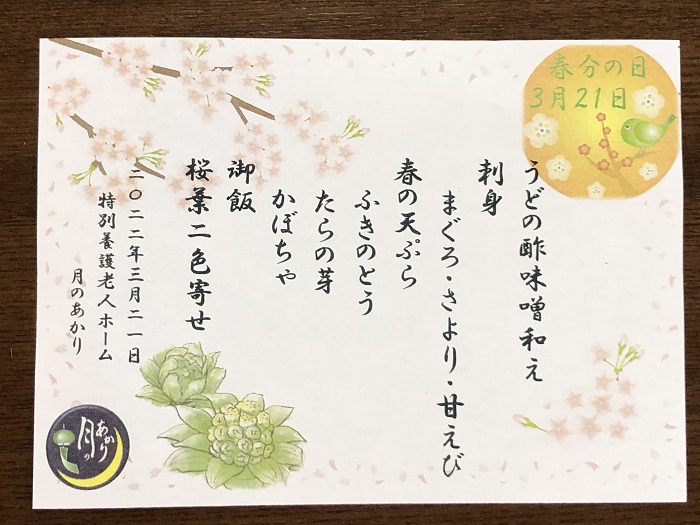 春分の日
3月21日
うどの酢味噌和え
刺身
まぐろ・さより・甘えび
春の天ぷら
ふきのとう
たらの芽
かぼちゃ
御飯
桜葉二色寄せ
二〇二二年三月二一日
特別養護老人ホーム
月のあかり
あかり
月の